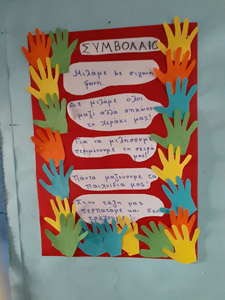 ΣΥΜΒΟΛΑΙΟ
Μιλάμε με σιγανή
φωνή.
Δε μιλάμε όλοι
μαζί αλλά σηκώνουμε
το χεράκι μας!
Για να μιλήσουμε
περιμένουμε τη σειρά
μας!!
Πάντα μαζεύουμε τα
παιχνίδια μας!
Στην τάξη μας
περπατάμε και δεν
τρέχουμε!